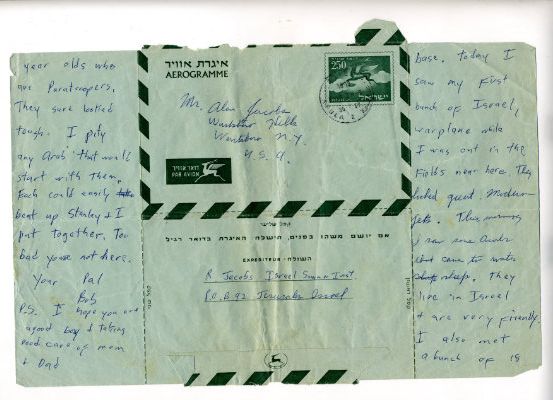 year olds who
are Paratroopers.
They sure looked
tough. I pity
any Arab that would
start with them.
Each could easily
beat up Stanley & I
put together. Too
bad youse not here.
Your Pal
Bob
P.S. I hope you are
a good boy & taking
good care of mom
& Dad
איגרת אוויר
AEROGRAMME
דואר אוויר
PAR AVION
250
ישראל
Mr. Alan Jacobs
N.Y.
U.S.A.
קפל שלישי
אם יושם משהו בפנים, תישלח האיגרת בדואר רגיל
השולח - EXPEDITEUR
R Jacobs Israel Inst.
P.O.B 92 Jerusalem Israel
קפל שני
base. Today I
saw my first
bunch of Israeli
warplane while
I was out in the
fields near here. They
looked great. Modern
Jets. This morning
I saw some Arabs
come to water
sheep. They
live in Israel
& are very friendly.
I also met
a bunch of 18